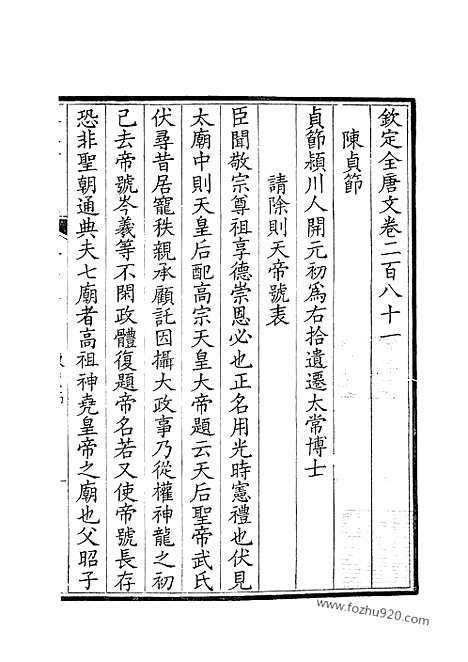 欽定全唐文卷二百八十一
陳貞節
貞節潁川人開元初爲右拾遺遷太常博士
請除則天帝號表
臣聞敬宗尊祖享德崇恩必也正名用光時憲禮也伏見
太廟中則天皇后配高宗天皇大帝題云天后聖帝武氏
伏尋昔居寵秩親承顧託因攝大政事乃從權神龍之初
已去帝號岑羲等不閑政體復題帝名若又使帝號長存
恐非聖朝通典夫七廟者高祖神堯皇帝之廟也父昭子
www.fozhu920.com